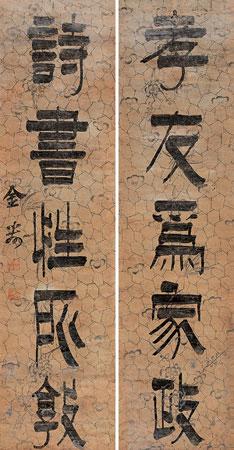 孝友爲家政
詩書性所敦
金